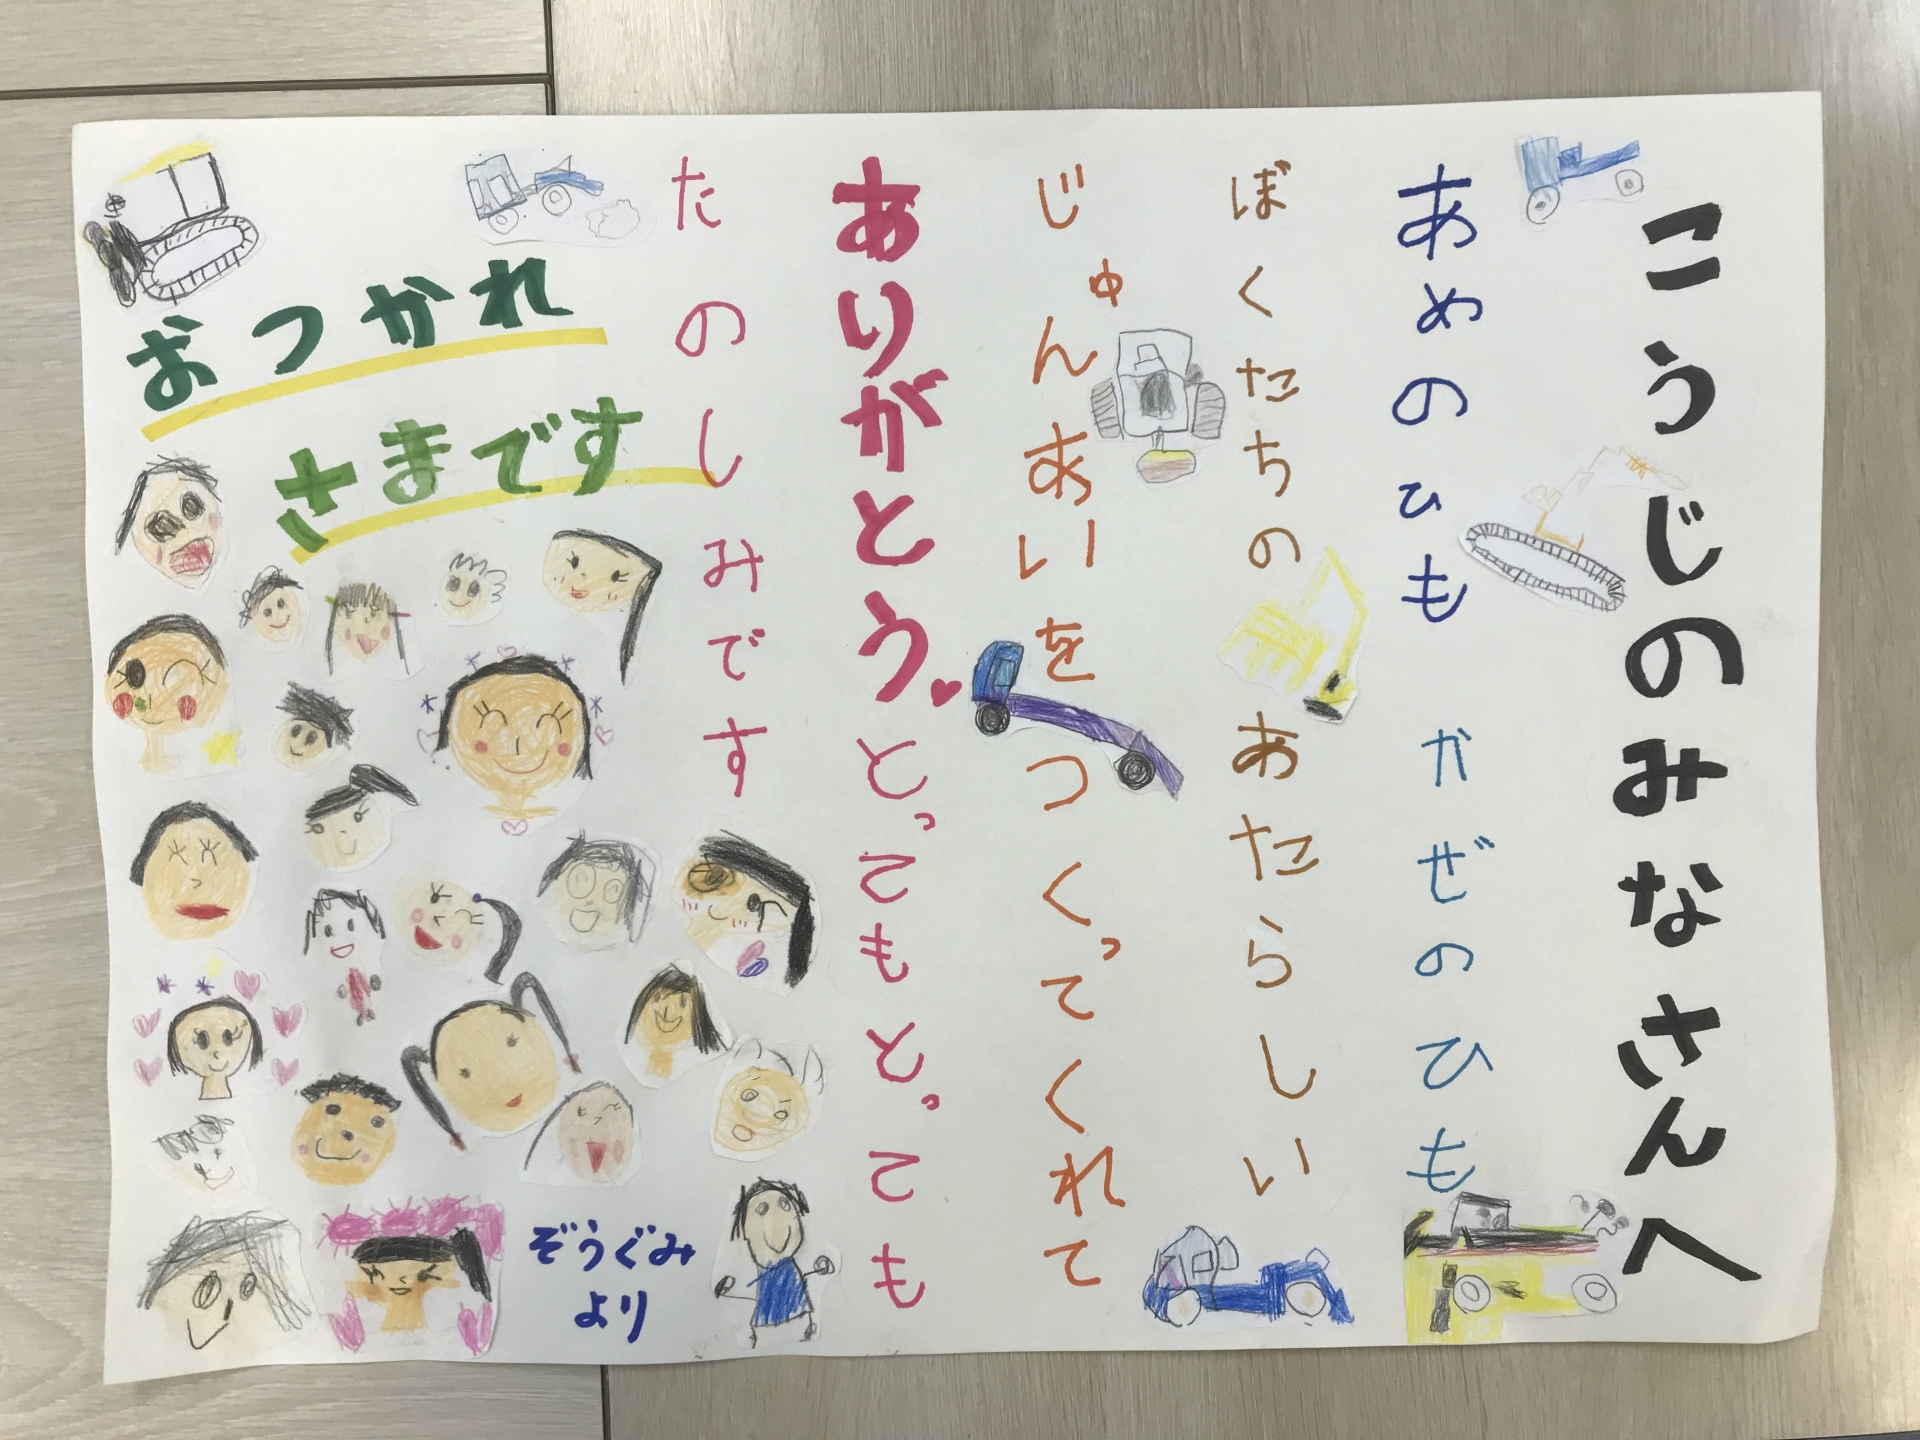 こうじのみなさんへ
あめのひも かぜのひも
ぼくたちの あたらしい
じゅんあいをつくってくれて
ありがとう♥とってもとっても
たのしみです
おつかれ
さまです
ぞうぐみ
より